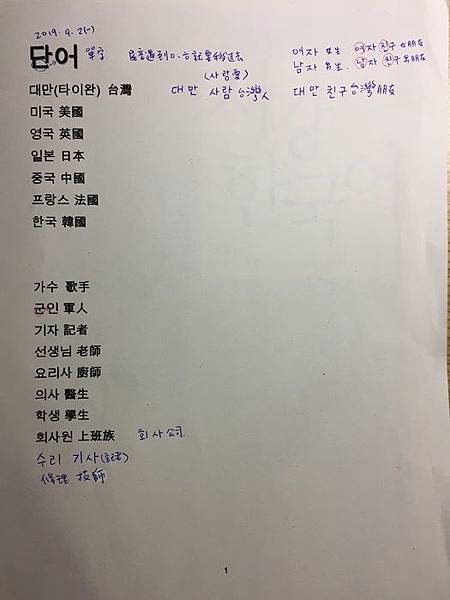 2019.4.2(一)
단어 單字 尾音遇到ㅇ.ㅎ就要移過去 여자 女生 여자 친구 女朋友
(사랑 愛) 남자 男生. 남자 친구 男朋友
대만(타이완) 台灣 대만 사람 台灣人 대만 친구 台灣朋友
미국 美國
영국 英國
일본 日本
중국 中國
프랑스 法國
한국 韓國
가수 歌手
군인 軍人
기자 記者
선생님 老師
요리사 廚師
의사 醫生
학생 學生
회사원 上班族 회사 公司
수리 기사(記者)
修理 技師
1